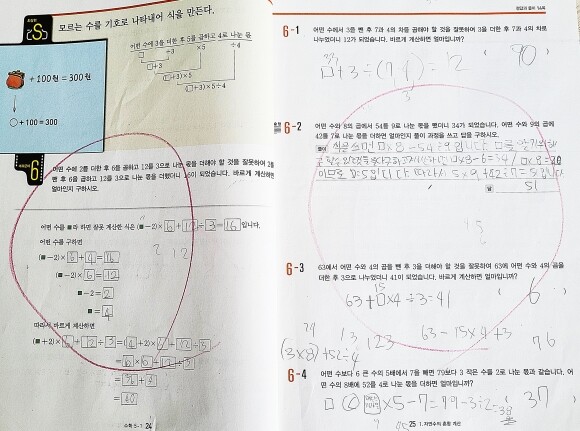 모르는 수를 기호로 나타내어 식을 만든다.
어떤 수에 3을 더한 후 5를 곱하고 4로 나눈 몫
□ +3 ×5 ÷4
□+3
(□+3)×5
(□+3)×5÷4
+100원=300원
○+100=300
6
어떤 수에 2를 더한 후 6을 곱하고 12를 3으로 나눈 몫을 더해야 할 것을 잘못하여 2를
뺀 후 6을 곱하고 12를 3으로 나눈 몫을 더했더니 16이 되었습니다. 바르게 계산하면
얼마인지 구하시오.
어떤 수를 ■라 하면 잘못 계산한 식은 (■-2)×6+12÷3=16입니다.
어떤 수를 구하면
(■-2)×6+4=16
(■-2)×6=12
■-2=2
■=4
따라서 바르게 계산하면
(■+2)×6+12÷3=(4+2)×6+12÷3
=6×6+12÷3
=36+4
=40
수학 5-1 24
6-1 어떤 수에서 3을 뺀 후 7과 4의 차를 곱해야 할 것을 잘못하여 3을 더한 후 7과 4의 차로
나누었더니 12가 되었습니다. 바르게 계산하면 얼마입니까?
( 90 )
□+3÷(7-4)=12
6-2 어떤 수와 8의 곱에서 54를 9로 나눈 몫을 뺐더니 34가 되었습니다. 어떤 수와 9의 곱에
42를 7로 나눈 몫을 더하면 얼마인지 풀이 과정을 쓰고 답을 구하시오.
풀이
답 51
6-3 63에서 어떤 수와 4의 곱을 뺀 후 3을 더해야 할 것을 잘못하여 63에 어떤 수와 4의 곱을
더한 후 3으로 나누었더니 41이 되었습니다. 바르게 계산하면 얼마입니까?
15
63+□×4÷3=41
( 6 )
63-15×4+3
(3×8)+52÷4
13
123
76
6-4 어떤 수보다 6 큰 수의 5배에서 7을 빼면 79보다 3 작은 수를 2로 나눈 몫과 같습니다. 어
떤 수의 8배에 52를 4로 나눈 몫을 더하면 얼마입니까?
×5-7=79-3÷2=38
( 37 )
25 1. 자연수의 혼합 계산